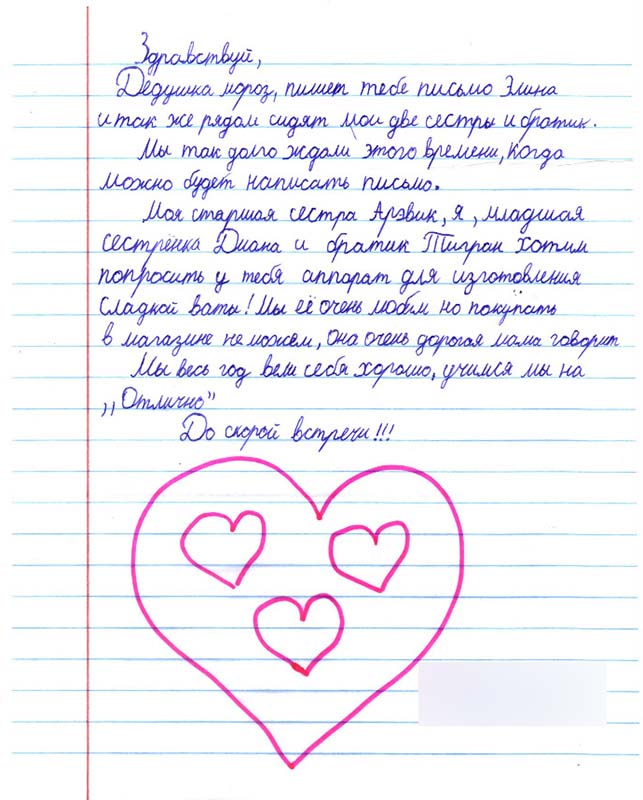 Здравствуй,
Дедушка мороз, пишет тебе письмо Элина
и так же рядом сидят мои две сестры и братик.
Мы так долго ждали этого времени, когда
можно будет написать письмо.
Моя старшая сестра Арэвик, я, младшая
сестрёнка Диана и братик Тигран хотим
попросить у тебя аппарат для изготовления
сладкой ваты! Мы её очень любим но покупать
в магазине не можем, она очень дорогая мама говорит
Мы весь год вели себя хорошо, учимся мы на
,,Отлично"
До скорой встречи!!!